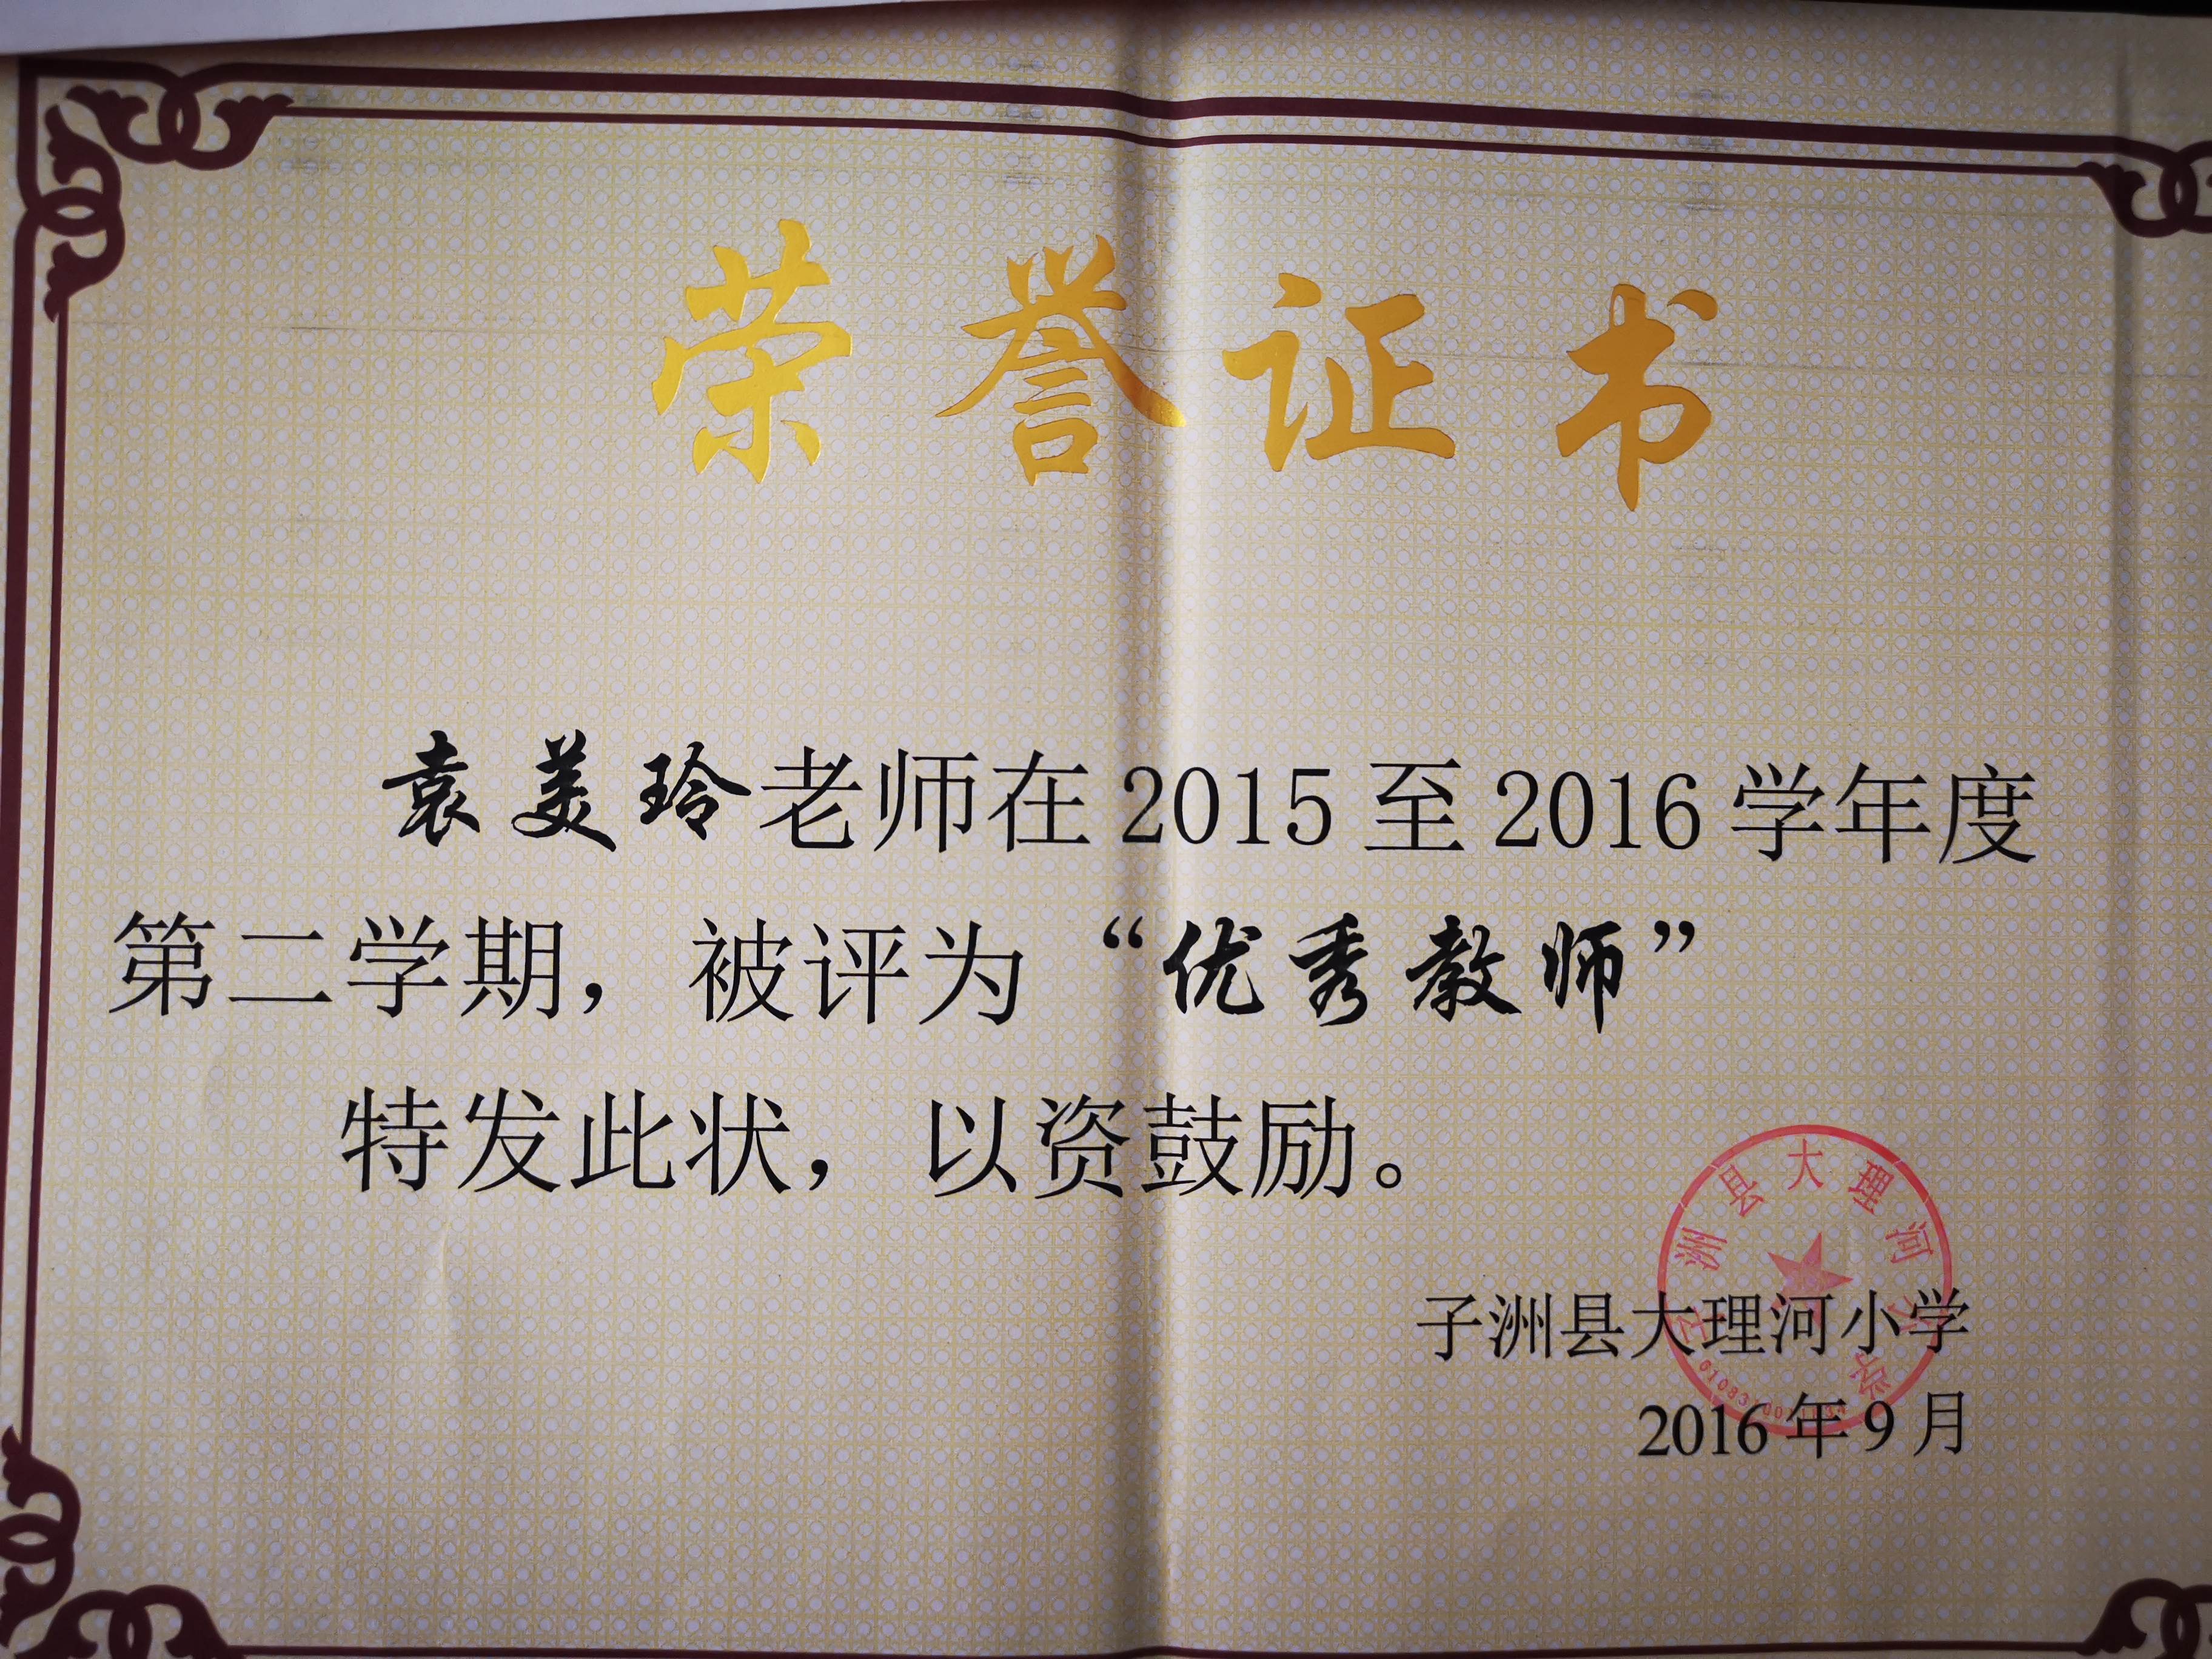 荣誉证书
袁美玲老师在2015至2016学年度
第二学期，被评为“优秀教师”
特发此状，以资鼓励。
子洲县大理河小学
子洲县大理河小学
2016年9月